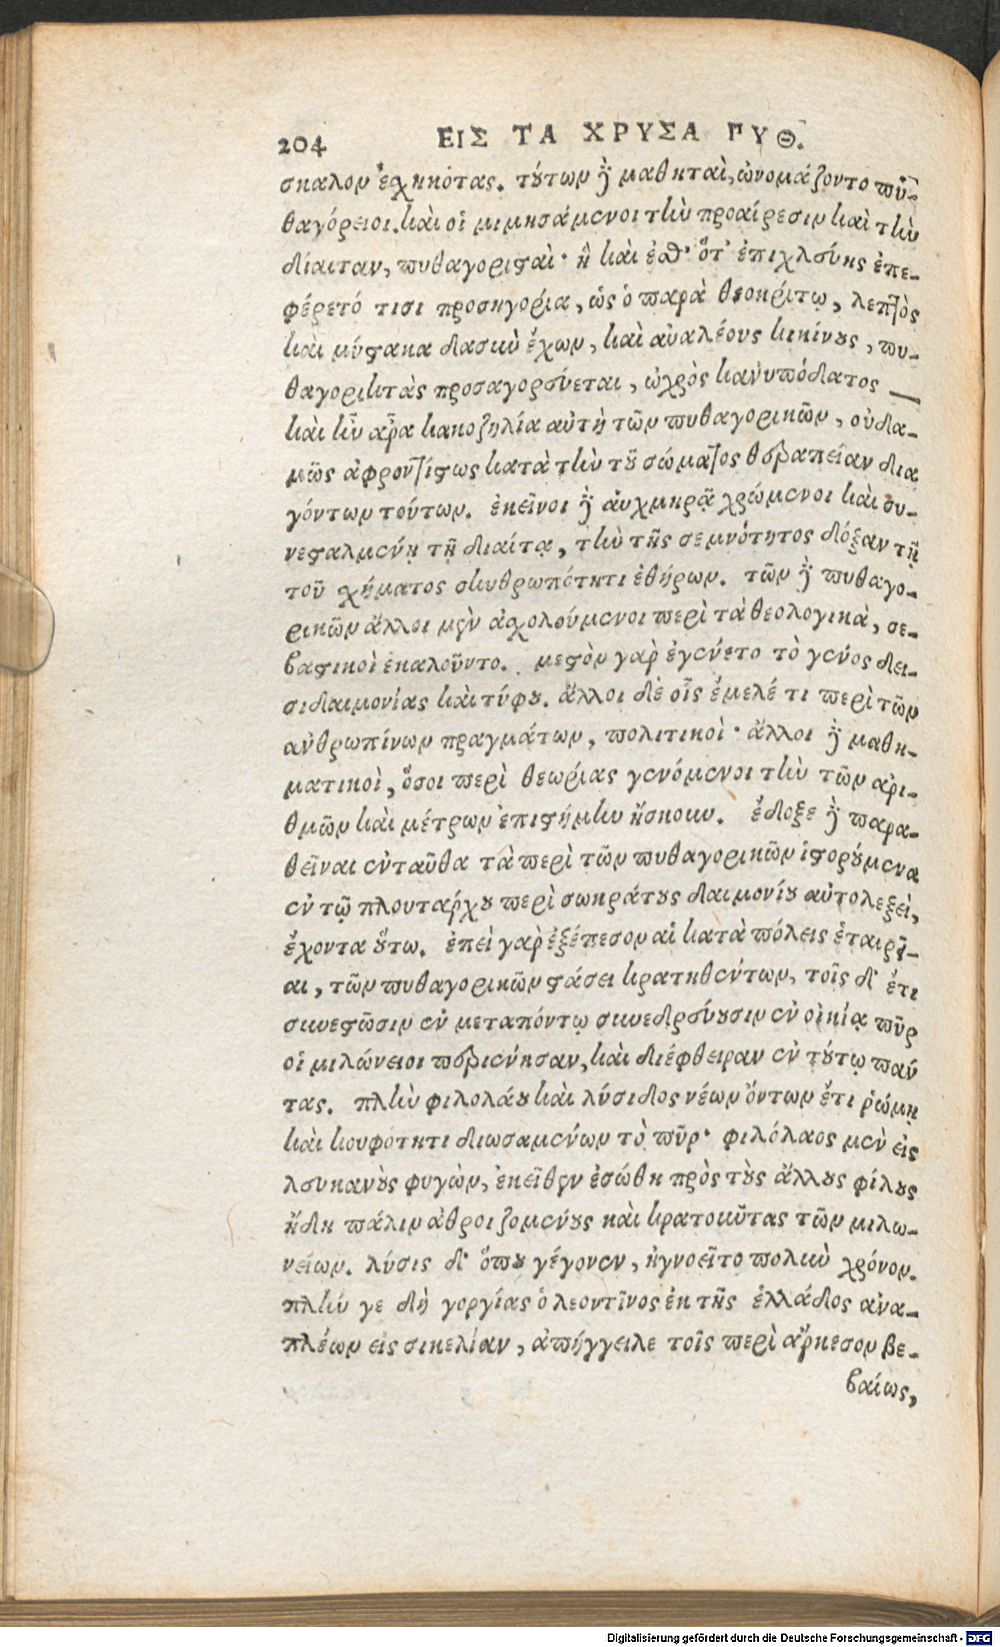 204 ΕΙΣ ΤΑ ΧΡΥΣΑ ΠΥΘ.
σκαλον ἐσχηκότας. τούτων δὲ μαθηταὶ, ὠνομάζοντο πυ-
θαγόρειοι. καὶ οἱ μιμησάμενοι τὴν προαίρεσιν καὶ τὴν
δίαιταν, πυθαγορισταὶ· ἣ καὶ ἐσθ' ὅτ' ἐπιχλεύης ἐπε-
φέρετό τισι προσηγορία, ὡς ὁ παρὰ θεοκρίτῳ, λεπτὸς
καὶ μύστακα δασκὺ ἔχων, καὶ αὐαλέους κικίνους, πυ-
θαγορικτὰς προσαγορεύεται, ὠχρὸς κἀνυπόδατος —
καὶ ἦν ἄρα κακοζηλία αὐτὴ τῶν πυθαγορικῶν, οὐδα-
μῶς ἀφροντίστως κατὰ τὴν τοῦ σώματος θεραπείαν δια
γόντων τούτων. ἐκεῖνοι δὲ αὐχμηρᾷ χρώμενοι καὶ συ-
νεσταλμένῃ τῇ διαίτᾳ, τὴν τῆς σεμνότητος δόξαν τῇ
τοῦ σχήματος σκυθρωπότητι ἐθήρων. τῶν δὲ πυθαγο-
ρικῶν ἄλλοι μὲν ἀσχολούμενοι περὶ τὰ θεολογικὰ, σε-
βαστικοὶ ἐκαλοῦντο. μεστὸν γὰρ ἐγένετο τὸ γένος δει-
σιδαιμονίας καὶ τύφου. ἄλλοι δὲ οἷς ἔμελέ τι περὶ τῶν
ἀνθρωπίνων πραγμάτων, πολιτικοὶ· ἄλλοι δὲ μαθη-
ματικοὶ, ὅσοι περὶ θεωρίας γενόμενοι τὴν τῶν ἀρι-
θμῶν καὶ μέτρων ἐπιστήμην ἤσκουν. ἔδοξε δὲ παρα-
θεῖναι ἐνταῦθα τὰ περὶ τῶν πυθαγορικῶν ἱστορούμενα
ἐν τῷ πλουτάρχου περὶ σωκράτους δαιμονίου αὐτολεξεὶ,
ἔχοντα οὕτω. ἐπεὶ γὰρ ἐξέπεσον αἱ κατὰ πόλεις ἑταιρεῖ-
αι, τῶν πυθαγορικῶν στάσει κρατηθέντων, τοῖς δ' ἔτι
συνεστῶσιν ἐν μεταπόντῳ συνεδρεύουσιν ἐν οἰκίᾳ πῦρ
οἱ μιλώνειοι περιένησαν, καὶ διέφθειραν ἐν τούτῳ πάν
τας. πλὴν φιλολάου καὶ λύσιδος νέων ὄντων ἔτι ῥώμῃ
καὶ κουφότητι διωσαμένων τὸ πῦρ· φιλόλαος μὲν εἰς
λευκανοὺς φυγὼν, ἐκεῖθεν ἐσώθη πρὸς τοὺς ἄλλους φίλους
ἤδη πάλιν ἀθροιζομένους καὶ κρατοῦντας τῶν μιλω-
νείων. λύσις δ' ὅπου γέγονεν, ἠγνοεῖτο πολὺν χρόνον.
πλήν γε δὴ γοργίας ὁ λεοντῖνος ἐκ τῆς ἑλλάδος ἀνα-
πλέων εἰς σικελίαν, ἀπήγγειλε τοῖς περὶ ἄρκεσον βε-
βαίως,
Digitalisierung gefördert durch die Deutsche Forschungsgemeinschaft - DFG